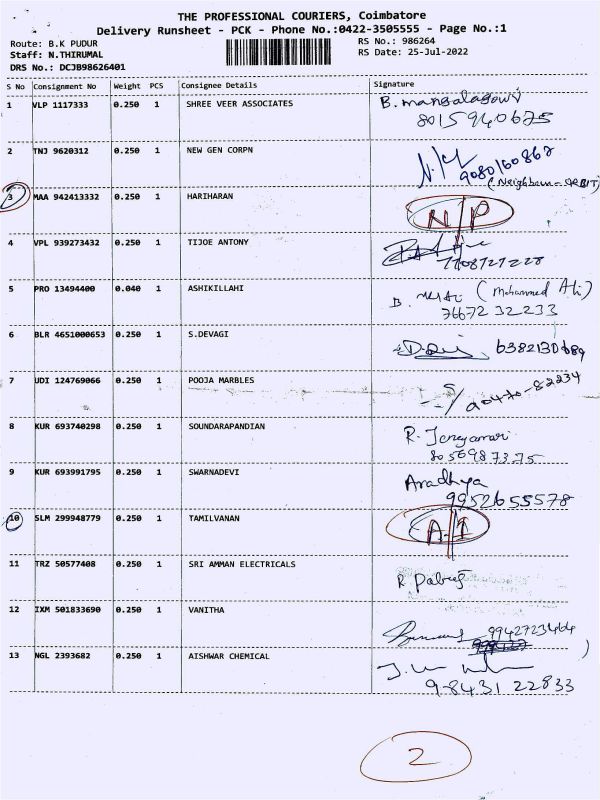 THE PROFESSIONAL COURIERS, Coimbatore
Delivery Runsheet - PCK - Phone No.:0422-3505555 - Page No.:1
Route: B.K PUDUR
RS No.: 986264
Staff: N.THIRUMAL
RS Date: 25-Jul-2022
DRS No.: DCJB98626401
S No Consignment No Weight PCS Consignee Details Signature
1 VLP 1117333 0.250 1 SHREE VEER ASSOCIATES B. mangalagowri
8015940675
2 TNJ 9620312 0.250 1 NEW GEN CORPN
9080160867
(Neighbour - ORBIT)
3 MAA 942413332 0.250 1 HARIHARAN N/P
4 VPL 939273432 0.250 1 TIJOE ANTONY
7708727228
5 PRO 13494400 0.040 1 ASHIKILLAHI B. (Mohammed Ali)
76672 32233
6 BLR 4651000653 0.250 1 S.DEVAGI 6382130689
7 UDI 124769066 0.250 1 POOJA MARBLES
8 KUR 693740298 0.250 1 SOUNDARAPANDIAN R.
8056987375
9 KUR 693991795 0.250 1 SWARNADEVI Aradhya
9952655578
10 SLM 299948779 0.250 1 TAMILVANAN
11 TRZ 50577408 0.250 1 SRI AMMAN ELECTRICALS R
12 IXM 501833690 0.250 1 VANITHA
9942723464
13 NGL 2393682 0.250 1 AISHWAR CHEMICAL
98431 22833
2